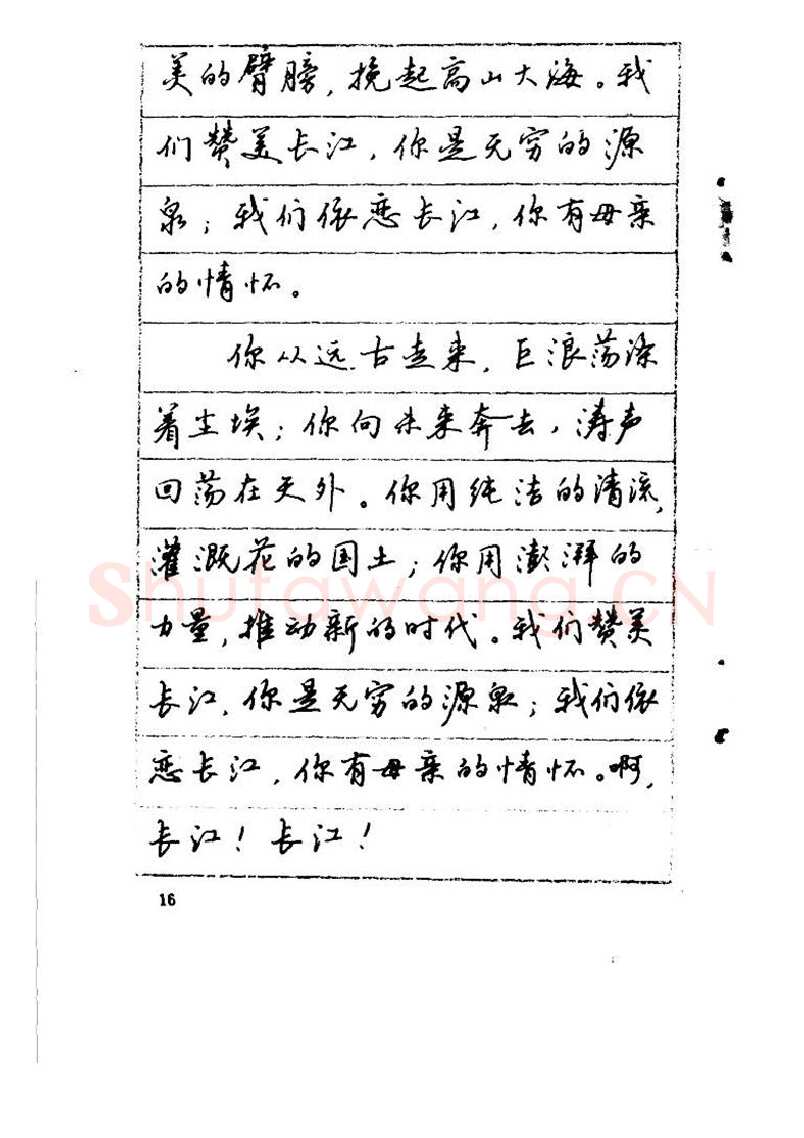 美的臂膀，挽起高山大海。我
们赞美长江，你是无穷的源
泉；我们依恋长江，你有母亲
的情怀。
你从远古走来，巨浪荡涤
着尘埃；你向未来奔去，涛声
回荡在天外。你用纯洁的清流，
灌溉花的国土；你用澎湃的
力量，推动新的时代。我们赞美
长江，你是无穷的源泉；我们依
恋长江，你有母亲的情怀。啊，
长江！长江！
16
Shufawang.CN